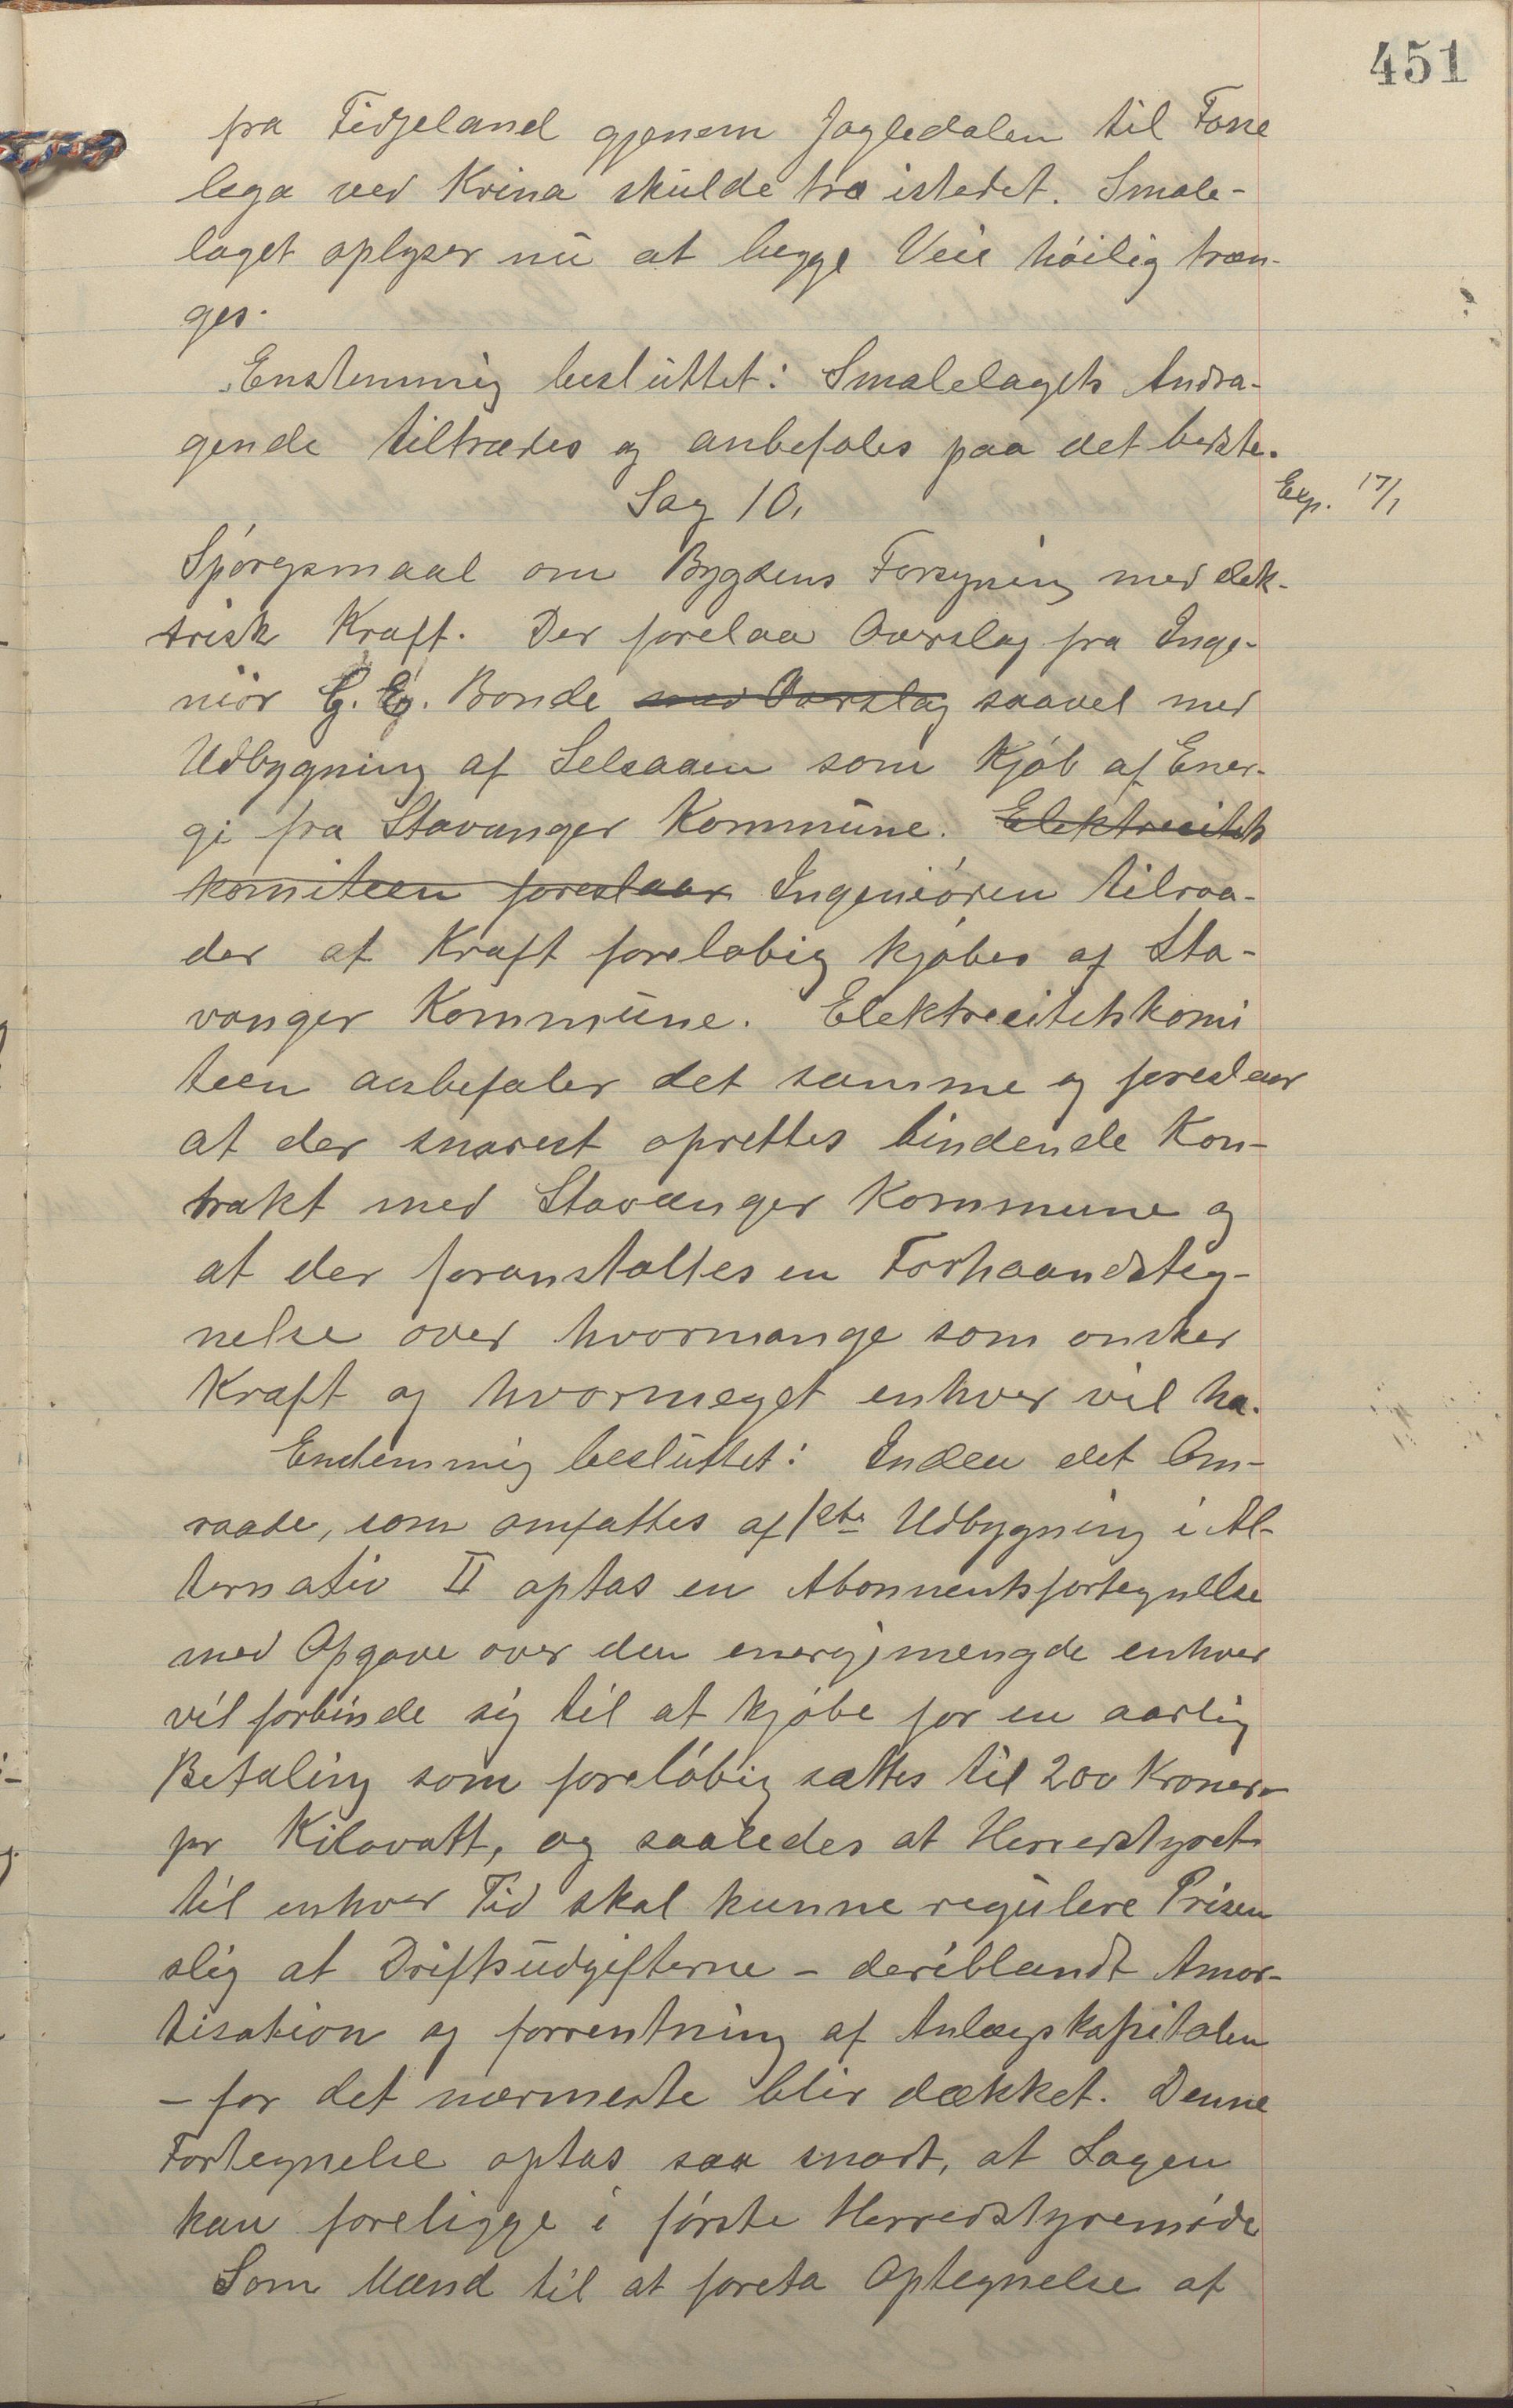 451
fra Fidjeland gjenem Jogledalen til Fosse
lega ved Krina skulde tra istedet. Smale-
laget oplyser nu at begge Veie høilig træn-
ges.
Enstemmig besluttet: Smalelagets Andra-
gende tiltrædes og anbefales paa det bedste.
Sag 10.
Exp. 17/1
Spörgsmaal om Bygdens Forsyning med elek-
trisk Kraft. Der forelaa Overslag fra Inge-
niör G. Eg. Bonde med Overslag saavel med
Udbygning af Selsaaen som Kjøb af Ener-
gi fra Stavanger Kommune. Elektrecitets
komiteen foreslaar Ingeniören tilraa-
der at Kraft foreløbig kjøbes af Sta-
vanger Kommune. Elektrecitetskomi
teen anbefaler det samme og foreslaar
at der snarest oprettes bindende Kon-
trakt med Stavanger Kommune og
at der foranstaltes en Forhaandsteg-
nelse over hvormange som ønsker
Kraft og hvormeget enhver vil ha.
Enstemmig besluttet: Inden det Om-
raade, som omfattes af 1ste Udbygning i Al-
ternativ II optas en Abonnentsfortegnelse
med Opgave over den energimengde enhver
vil forbinde sig til at kjøbe for en aarlig
Betaling som foreløbig sættes til 200 Kroner
pr Kilovatt, og saaledes at Herredstyret
til enhver Tid skal kunne regulere Prisen
slig at Driftsudgifterne – deriblandt Amor-
tisation og forrentning af Anlægskapitalen
– for det nærmeste blir dækket. Denne
Fortegnelse optas saa snart, at Sagen
kan foreligge i første Herredstyremøde
Som Mænd til at foreta Optegnelse af